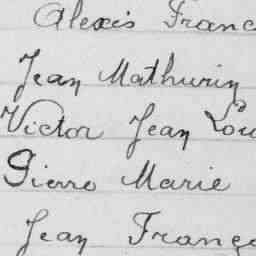 Alexis Franc
Jean Mathurin
Victor Jean Lou
Pierre Marie
Jean Franço